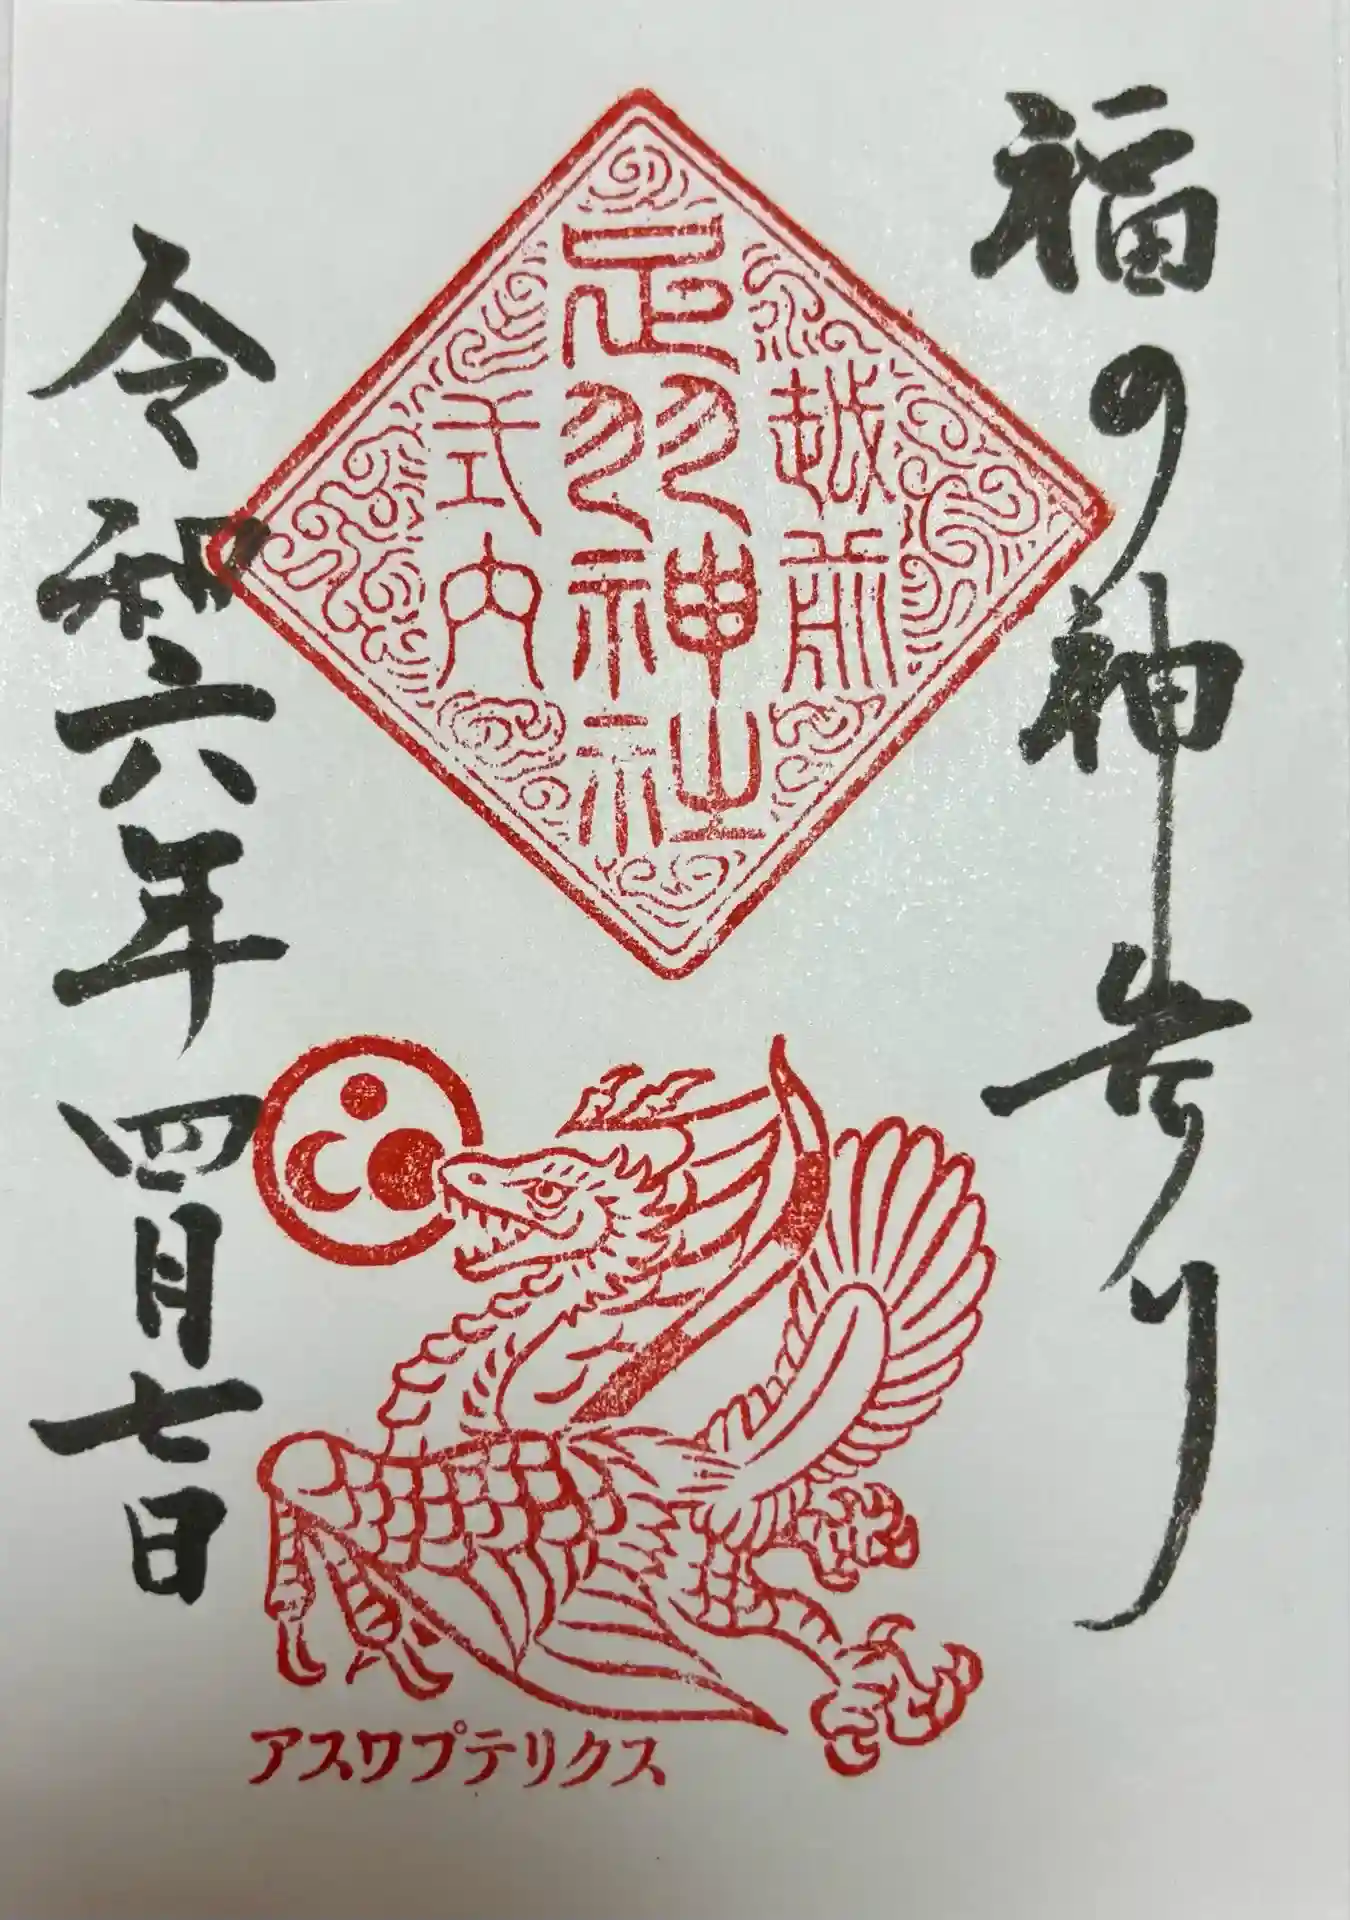 福の神参り
越前
足羽神社
式内
令和六年四月七日
アスワプテリクス